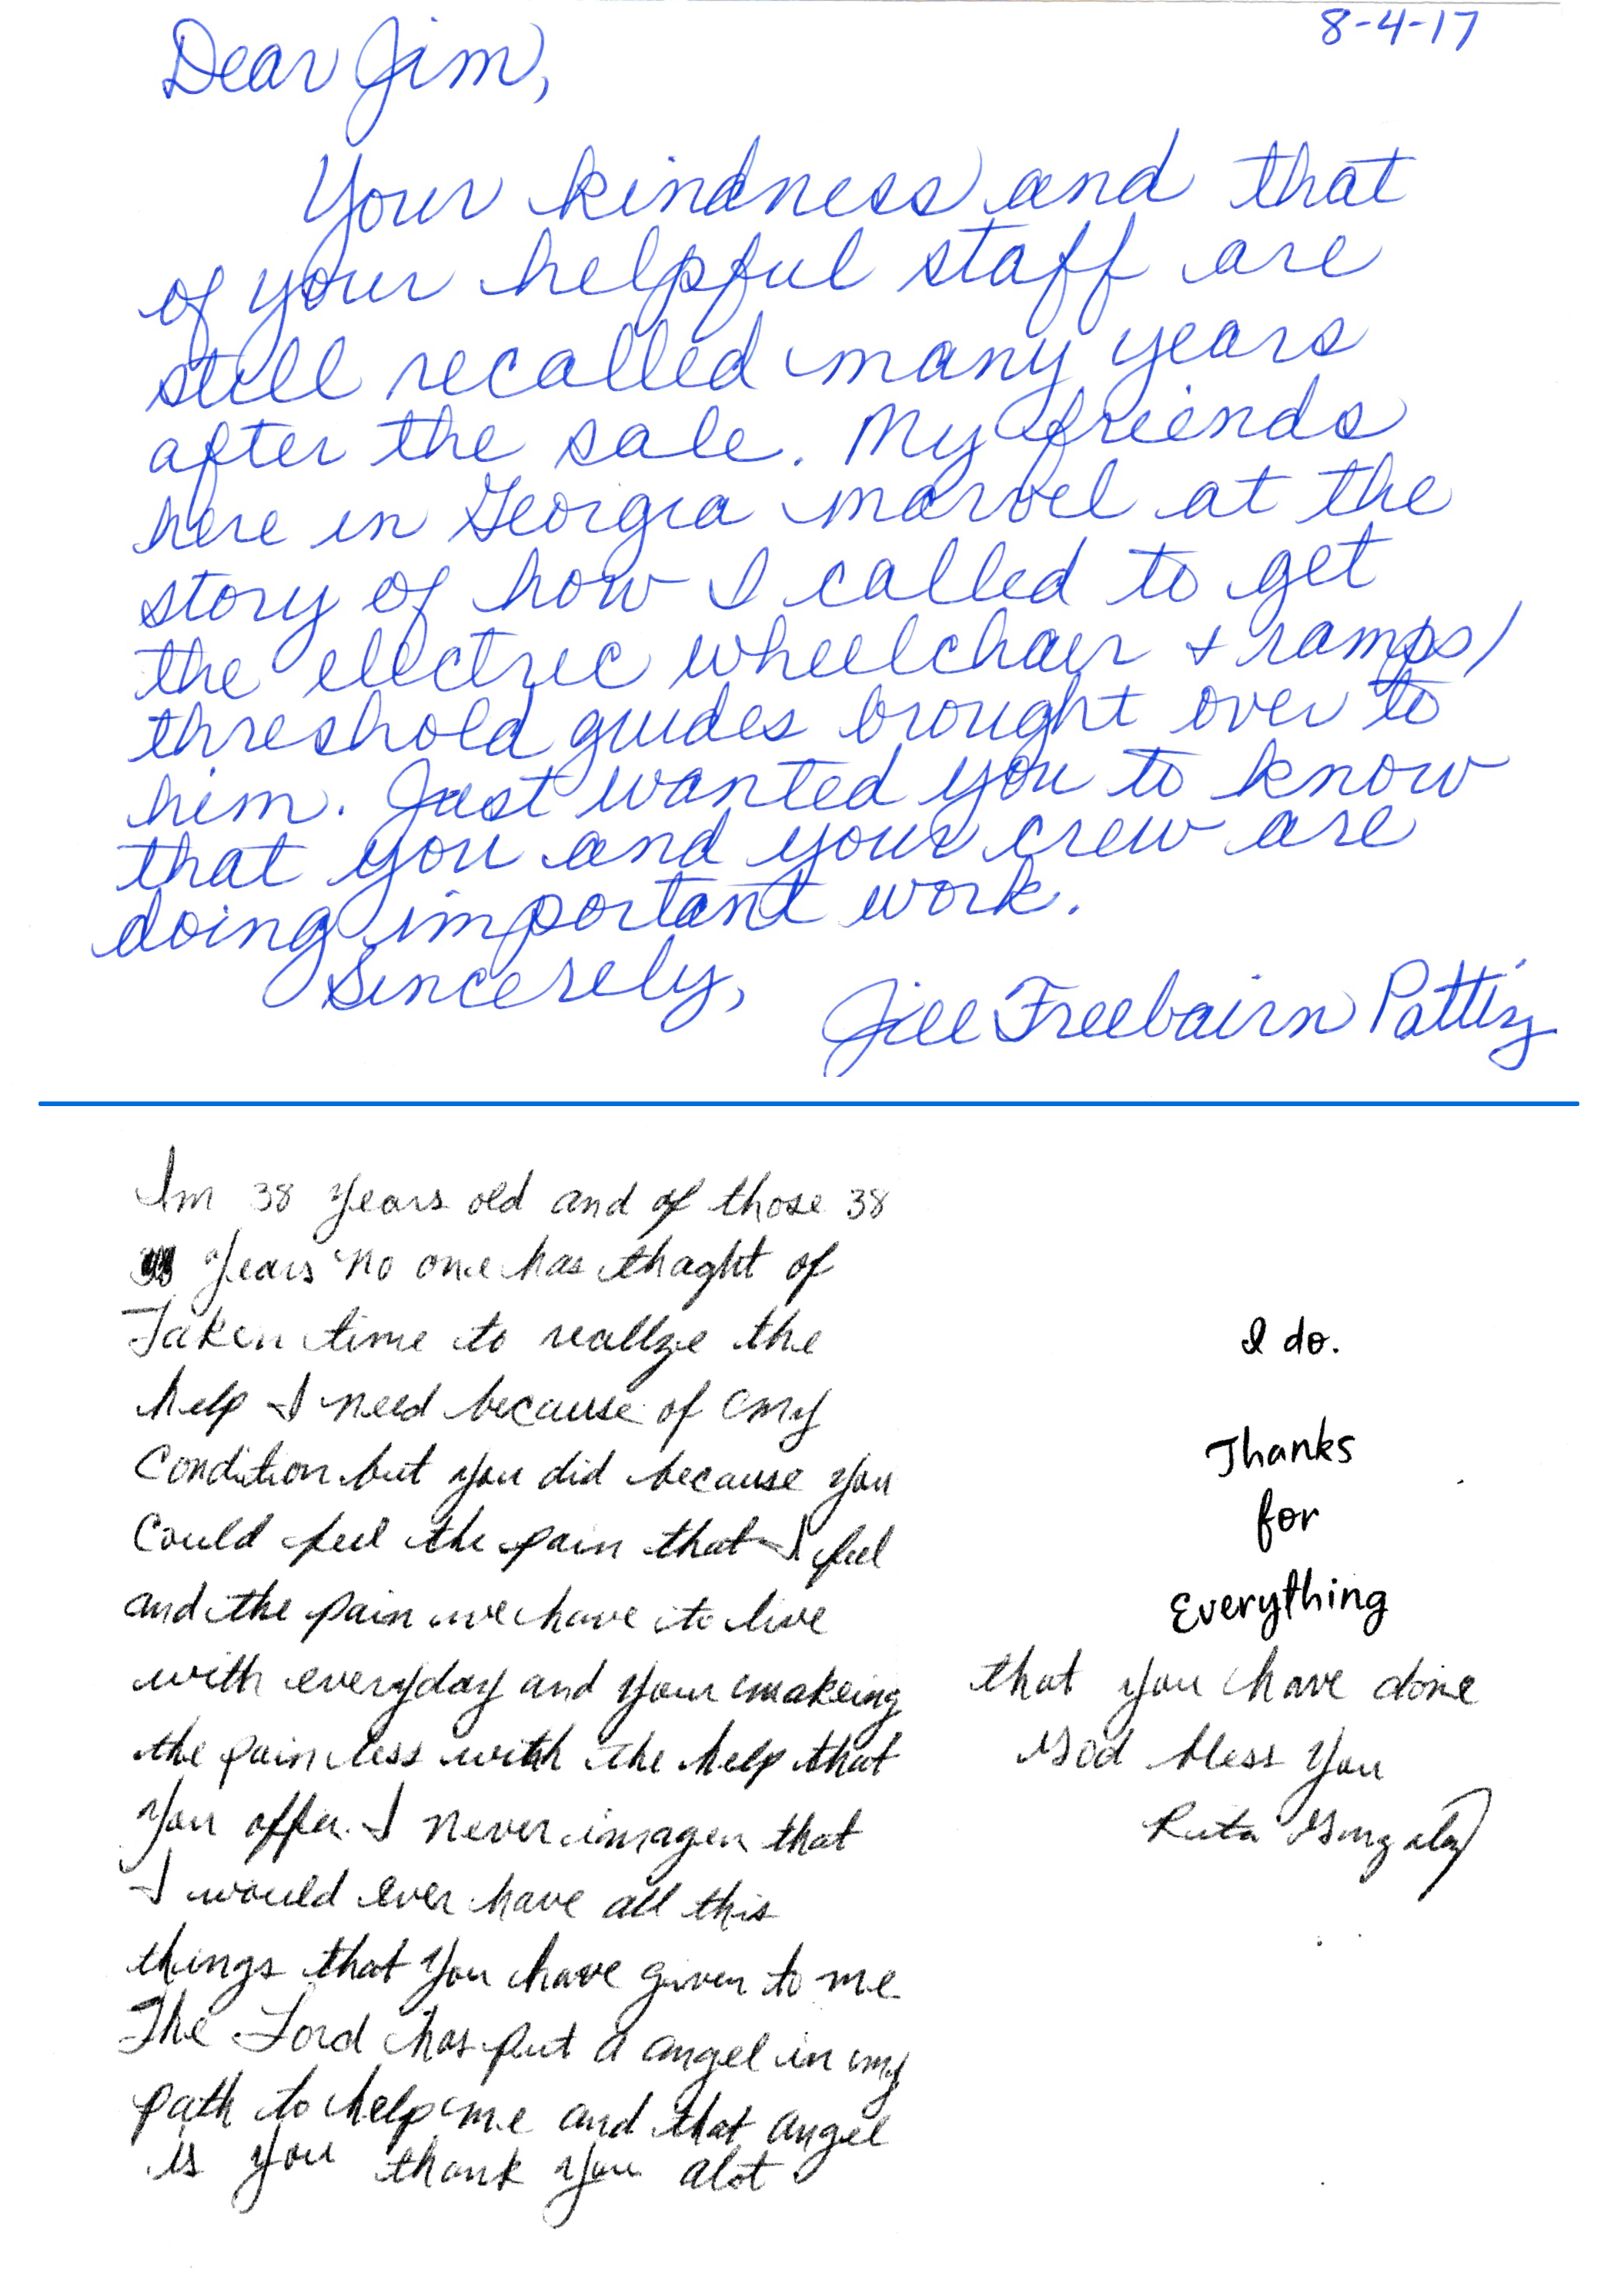 8-4-17
Dear Jim,
Your kindness and that
of your helpful staff are
still recalled many years
after the sale. My friends
here in Georgia marvel at the
story of how I called to get
the electric wheelchair + ramps/
threshold guides brought over to
him. Just wanted you to know
that you and your crew are
doing important work.
Sincerely,
Jill Freebairn Pattiz
Im 38 years old and of those 38
years no one has thaght of
Taken time to reallze the
help I need because of my
Condition but you did because you
Could feel the pain that I feel
and the pain we have to live
with everyday and your makeing
the pain less with the help that
you offer. I never imagen that
I would ever have all this
things that you have given to me
The Lord has put a angel in my
path to help me and that angel
is you thank you alot
I do.
Thanks
for
Everything
that you have done
God bless you